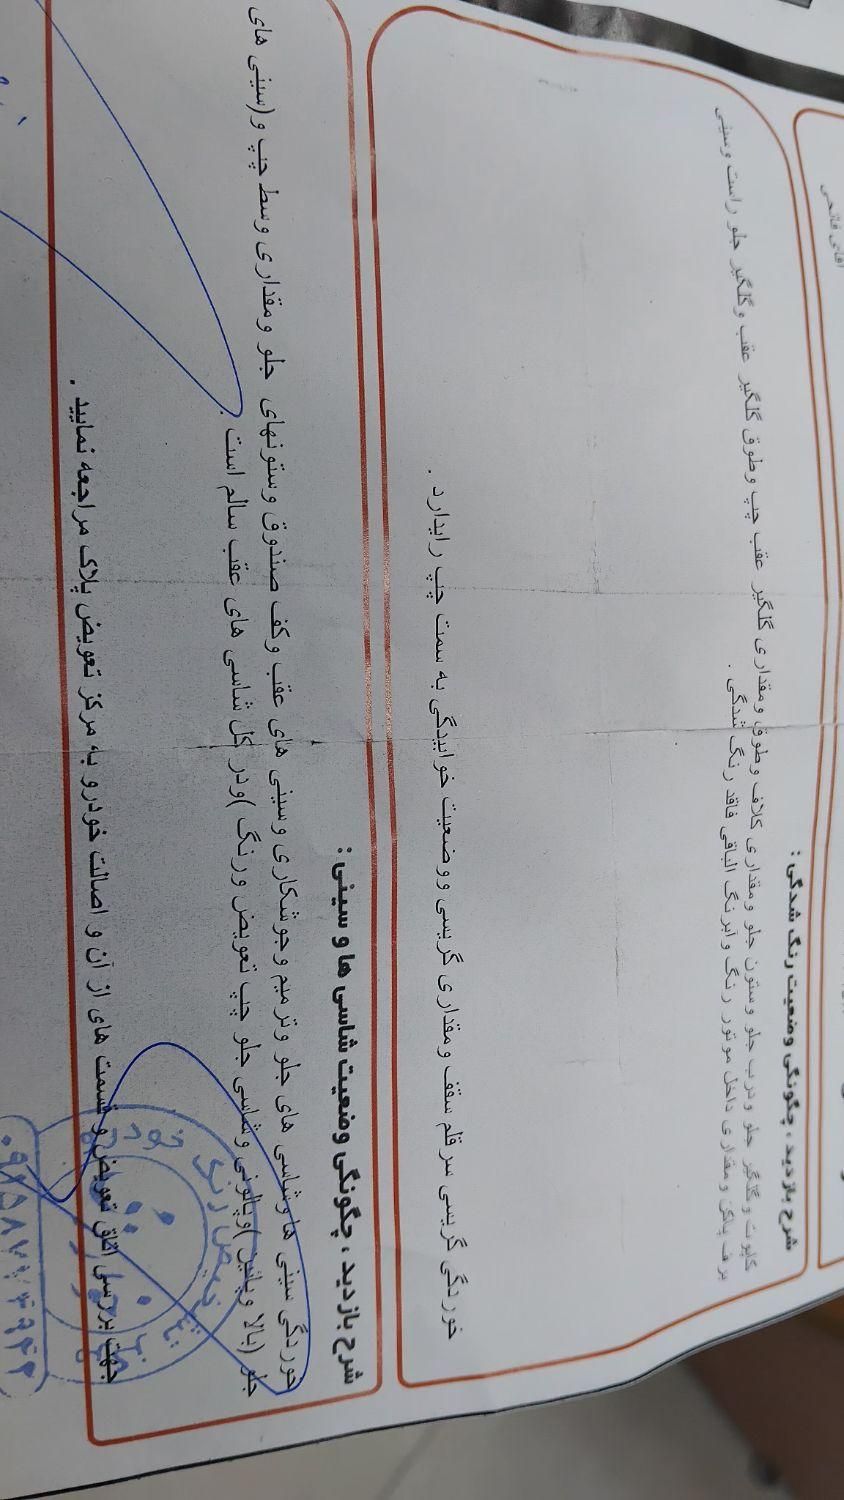 آقای فاتحی
شرح بازدید ، چگونگی وضعیت رنگ شدگی :
کاپوت وگلگیر جلو ودرب جلو وستون جلو ومقداری کلاف وطوق ومقداری گلگیر عقب چپ وطوق گلگیر عقب وگلگیر جلو راست وسینی
برف پاکن ومقداری داخل موتور رنگ وآبرنگ الباقی فاقد رنگ شدگی .
خوردگی گریسی سرقلم سقف ومقداری گریسی ووضعیت خوابیدگی به سمت چپ رایدارد .
شرح بازدید ، چگونگی وضعیت شاسی ها و سینی :
خوردگی سینی هاوشاسی های جلو وترمیم وجوشکاری وسینی های عقب وکف صندوق وستونهای جلو ومقداری وسط چپ و(سینی های
جلو (بالا وپائین )وپالونی وشاسی جلو چپ تعویض ورنگ )ودر کل شاسی های عقب سالم است .
جهت بررسی اتاق تعویض و قسمت های از آن و اصالت خودرو به مرکز تعویض پلاک مراجعه نمایید .
تشخیص رنگ خودرو